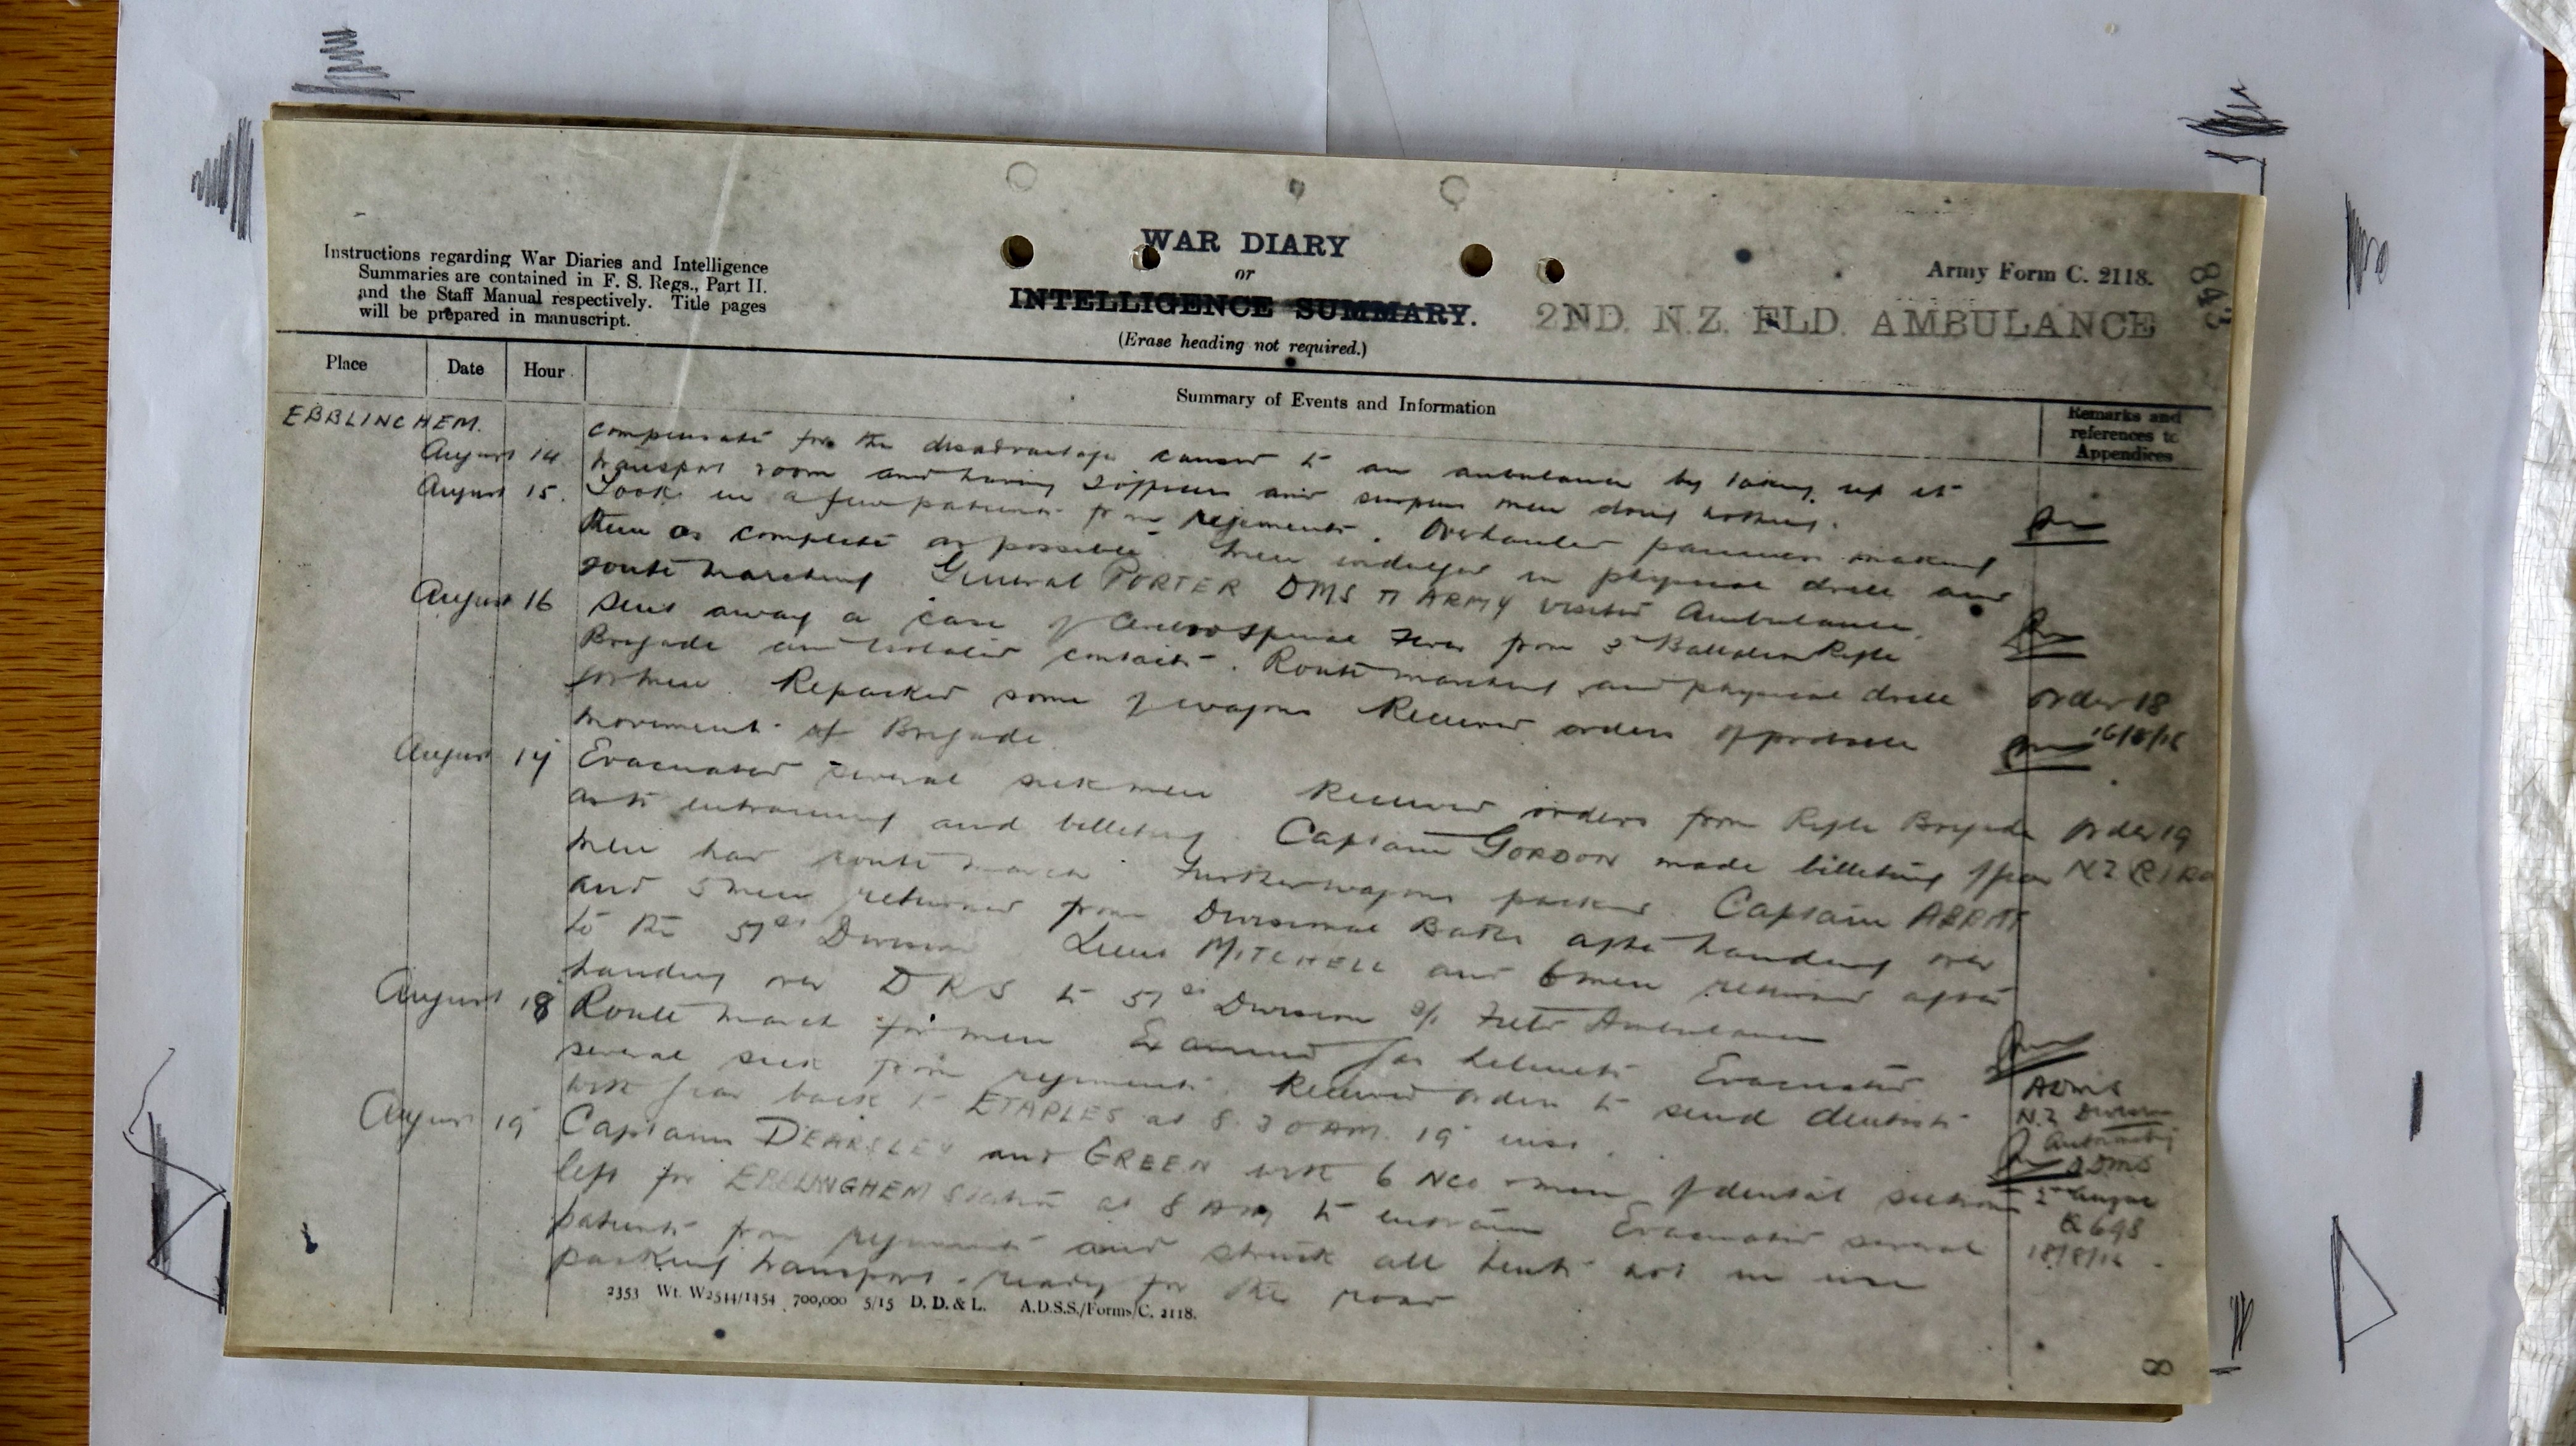 WAR DIARY
or
INTELLIGENCE SUMMARY.
(Erase heading not required.)
Instructions regarding War Diaries and Intelligence
Summaries are contained in F. S. Regs., Part II.
and the Staff Manual respectively. Title pages
will be prepared in manuscript.
Army Form C. 2118.
843
2ND. N.Z. FLD. AMBULANCE
Place Date Hour
Summary of Events and Information
Remarks and
references to
Appendices
EBBLINCHEM.
compensate for the disadvantage caused to an ambulance by taking up its
August 14 transport room and having 2 officers and surplus men doing nothing.
August 15. Took in a few patients from regiments. Overhauled panniers making
them as complete as possible. Men indulged in physical drill and
route marching. General PORTER DMS II ARMY visited Ambulance.
August 16 Sent away a case of Cerebro Spinal Fever from 3 Battalion Rifle
Brigade and isolated contacts. Route marching and physical drill
for men. Repacked some of wagons Received orders of probable
movement of Brigade.
Order 18
16/8/16
August 17 Evacuated several sick men Received orders from Rifle Brigade
as to entraining and billeting. Captain GORDON made billeting officer
Order 19
N Z R
men had route march Further wagons packed. Captain
and 5 men returned from Divisional Baths after handing over
to the 51st Division Lieut MITCHELL and 6 men returned after
handing over DRS to 51st Division Field Ambulance
August 18 Route march for men Examined gas helmets Evacuated
several sick from regiments. Received orders to send dentists
with gear back to ETAPLES at 8.30 AM. 19 inst.
ADMS
N.Z Division
Authority
DDMS
2
R 698
18/8/16
August 19 Captains DEARSLEY and GREEN with 6 NCO men of dental section
left for EBBLINGHEM Station at 8 AM to entrain Evacuated several
patients from regiments and struck all tents not in use
packing transport ready for the road
2353 Wt. W2544/1454 700,000 5/15 D. D. & L. A.D.S.S./Forms/C. 2118.
8